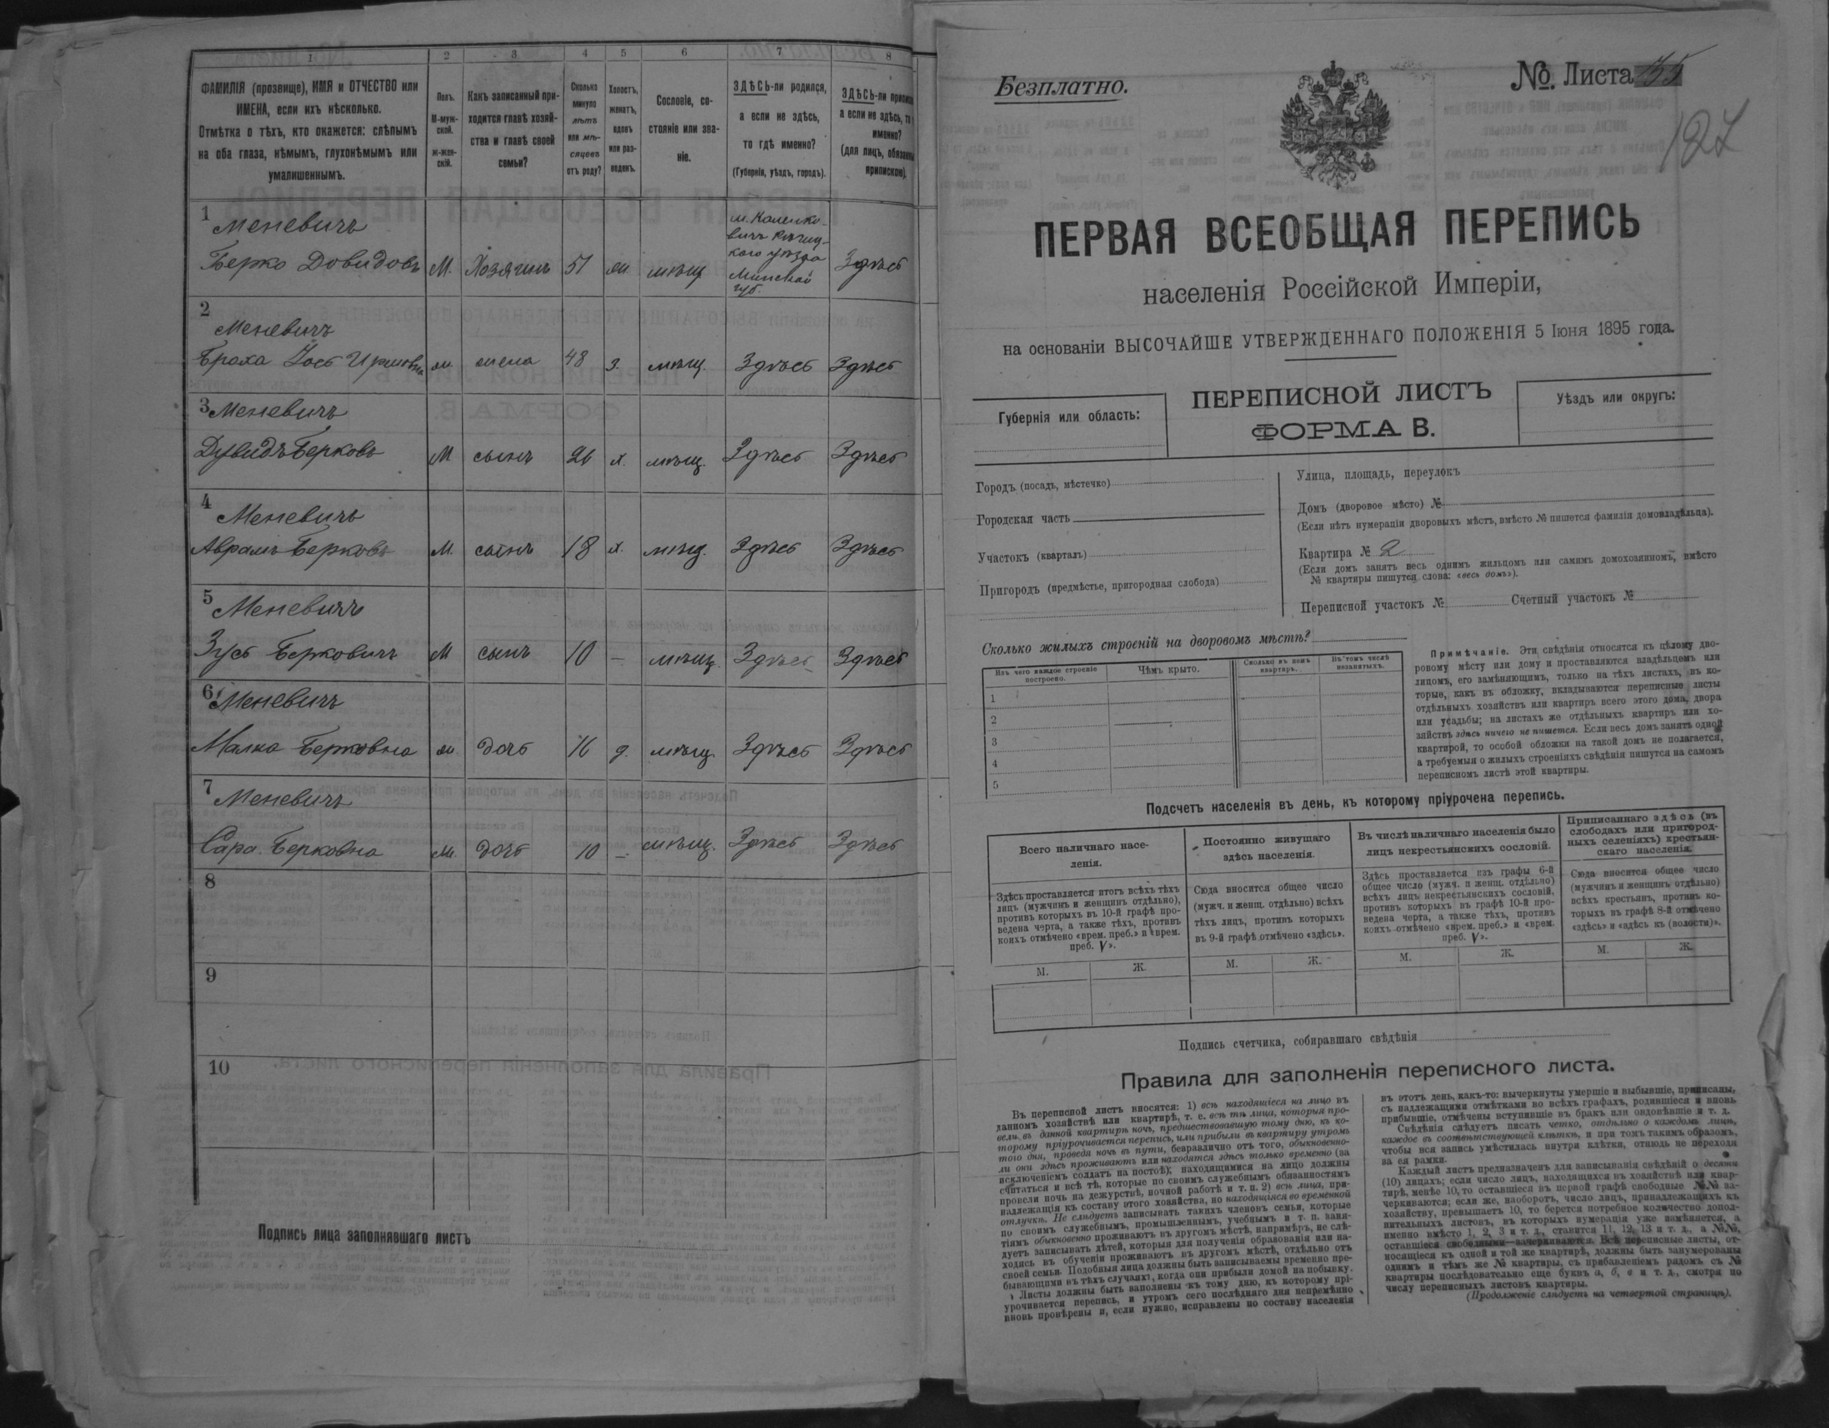 1 2 3 4 5 6 7 8
ФАМИЛІЯ (прозвище), ИМЯ и ОТЧЕСТВО или
ИМЕНА, если ихъ нѣсколько.
Отмѣтка о тѣхъ, кто окажется: слѣпымъ
на оба глаза, нѣмымъ, глухонѣмымъ или
умалишеннымъ.
Полъ.
М-муж-
ской.
ж-жен-
скій.
Какъ записанный при-
ходится главѣ хозяй-
ства и главѣ своей
семьи?
Сколько
минуло
лѣтъ
или мѣ-
сяцевъ
отъ роду?
Холостъ,
женатъ,
вдовъ
или раз-
веденъ.
Сословіе, со-
стояніе или зва-
ніе.
ЗДѢСЬ-ли родился,
а если не здѣсь,
то гдѣ именно?
(Губернія, уѣздъ, городъ).
ЗДѢСЬ-ли
а если не здѣсь,
именно?
(для лицъ,
припискою).
1 Меневичъ
Берко Довидовъ М. Хозяинъ 51 мѣщ
уѣзда
Минской
губ.
Здѣсь
2 Меневичъ
Браха жена 48 з. мѣщ. Здѣсь Здѣсь
3 Меневичъ
Дувидъ Берковъ М сынъ 26 х. мѣщ. Здѣсь Здѣсь
4 Меневичъ
Аврамъ Берковъ М. сынъ 18 х. мѣщ. Здѣсь Здѣсь
5 Меневичъ
Беркович М сынъ 10 — мѣщ. Здѣсь Здѣсь
6 Меневичъ
Малка Берковна ж. дочь 16 д. мѣщ. Здѣсь Здѣсь
7 Меневичъ
Сара Берковна дочь 10 — мѣщ. Здѣсь Здѣсь
8
9
10
Подпись лица заполнявшаго листъ
Безплатно.
№ Листа
127
ПЕРВАЯ ВСЕОБЩАЯ ПЕРЕПИСЬ
населенія Россійской Имперіи,
на основаніи ВЫСОЧАЙШЕ УТВЕРЖДЕННАГО ПОЛОЖЕНІЯ 5 Іюня 1895 года.
ПЕРЕПИСНОЙ ЛИСТЪ
ФОРМА В.
Губернія или область:
Уѣздъ или округъ:
Городъ (посадъ, мѣстечко)
Городская часть
Участокъ (кварталъ)
Пригородъ (предмѣстье, пригородная слобода)
Улица, площадь, переулокъ
Домъ (дворовое мѣсто) №
(Если нѣтъ нумераціи дворовыхъ мѣстъ, вмѣсто № пишется фамилія домовладѣльца).
Квартира № 2
(Если домъ занятъ весь однимъ жильцомъ или самимъ домохозяиномъ, вмѣсто
№ квартиры пишутся слова: «весь домъ»).
Переписной участокъ № Счетный участокъ №
Сколько жилыхъ строеній на дворовомъ мѣстѣ?
Изъ чего каждое строеніе
построено.
Чѣмъ крыто.
Сколько въ немъ
квартиръ.
Въ томъ числѣ
незанятыхъ.
1
2
3
4
5
Примѣчаніе. Эти свѣдѣнія относятся къ цѣлому дво-
ровому мѣсту или дому и проставляются владѣльцемъ или
лицомъ, его замѣняющимъ, только на тѣхъ листахъ, въ ко-
торые, какъ въ обложку, вкладываются переписные листы
отдѣльныхъ хозяйствъ или квартиръ всего этого дома, двора
или усадьбы; на листахъ же отдѣльныхъ квартиръ или хо-
зяйствъ здѣсь ничего не пишется. Если весь домъ занятъ одной
квартирой, то особой обложки на такой домъ не полагается,
а требуемыя о жилыхъ строеніяхъ свѣдѣнія пишутся на самомъ
переписномъ листѣ этой квартиры.
Подсчетъ населенія въ день, къ которому пріурочена перепись.
Всего наличнаго насе-
ленія.
Здѣсь проставляется итогъ всѣхъ тѣхъ
лицъ (мужчинъ и женщинъ отдѣльно),
противъ которыхъ въ 10-й графѣ про-
ведена черта, а также тѣхъ, противъ
коихъ отмѣчено «врем. преб.» и «врем.
преб. V».
Постоянно живущаго
здѣсь населенія.
Сюда вносится общее число
(мужч. и женщ. отдѣльно) всѣхъ
тѣхъ лицъ, противъ которыхъ
въ 9-й графѣ отмѣчено «здѣсь».
Въ числѣ наличнаго населенія было
лицъ некрестьянскихъ сословій.
Здѣсь проставляется изъ графы 6-й
общее число (мужч. и женщ. отдѣльно)
всѣхъ лицъ некрестьянскихъ сословій,
противъ которыхъ въ графѣ 10-й про-
ведена черта, а также тѣхъ, противъ
коихъ отмѣчено «врем. преб.» и «врем.
преб. V».
Приписаннаго здѣсь (въ
слободахъ или пригород-
ныхъ селеніяхъ) крестьян-
скаго населенія.
Сюда вносится общее число
(мужчинъ и женщинъ отдѣльно)
всѣхъ крестьянъ, противъ ко-
торыхъ въ графѣ 8-й отмѣчено
«здѣсь» и «здѣсь къ (волости)».
М. Ж. М. Ж. М. Ж. М. Ж.
Подпись счетчика, собиравшаго свѣдѣнія
Правила для заполненія переписного листа.
Въ переписной листъ вносятся: 1) всѣ находящіеся на лицо въ
данномъ хозяйствѣ или квартирѣ, т. е. всѣ тѣ лица, которыя про-
вели въ данной квартирѣ ночь, предшествовавшую тому дню, къ ко-
торому пріурочивается перепись, или прибыли въ квартиру утромъ
того дня, проведя ночь въ пути, безразлично отъ того, обыкновенно-
ли они здѣсь проживаютъ или находятся здѣсь только временно (за
исключеніемъ солдатъ на постоѣ); находящимися на лицо должны
считаться и всѣ тѣ, которые по своимъ служебнымъ обязанностямъ
провели ночь на дежурствѣ, ночной работѣ и т. п. 2) всѣ лица, при-
надлежащія къ составу этого хозяйства, но находящіяся во временной
отлучкѣ. Не слѣдуетъ записывать такихъ членовъ семьи, которые
по своимъ служебнымъ, промышленнымъ, учебнымъ и т. п. заня-
тіямъ обыкновенно проживаютъ въ другомъ мѣстѣ, напримѣръ, не слѣ-
дуетъ записывать дѣтей, которыя для полученія образованія или на-
ходясь въ обученіи проживаютъ въ другомъ мѣстѣ, отдѣльно отъ
своей семьи. Подобныя лица должны быть записываемы временно пре-
бывающими въ тѣхъ случаяхъ, когда они прибыли домой на побывку.
Листы должны быть заполнены къ тому дню, къ которому прі-
урочивается перепись, и утромъ сего послѣдняго дня непремѣнно
вновь провѣрены и, если нужно, исправлены по составу населенія
въ этотъ день, какъ-то: вычеркнуты умершіе и выбывшіе, приписаны,
съ надлежащими отмѣтками во всѣхъ графахъ, родившіеся и вновь
прибывшіе, отмѣчены вступившіе въ бракъ или овдовѣвшіе и т. д.
Свѣдѣнія слѣдуетъ писать четко, отдѣльно о каждомъ лицѣ,
каждое въ соотвѣтствующей клѣткѣ, и при томъ такимъ образомъ,
чтобы вся запись умѣстилась внутри клѣтки, отнюдь не переходя
за ея рамки.
Каждый листъ предназначенъ для записыванія свѣдѣній о десяти
(10) лицахъ; если число лицъ, находящихся въ хозяйствѣ или квар-
тирѣ, менѣе 10, то оставшіеся въ первой графѣ свободные №№ за-
черкиваются; если же, наоборотъ, число лицъ, принадлежащихъ къ
хозяйству, превышаетъ 10, то берется потребное количество допол-
нительныхъ листовъ, въ которыхъ нумерація уже измѣняется, а
именно вмѣсто 1, 2, 3 и т. д., ставится 11, 12, 13 и т. д., а №№,
оставшіеся свободными зачеркиваются. Всѣ переписные листы, от-
носящіеся къ одной и той же квартирѣ, должны быть занумерованы
однимъ и тѣмъ же № квартиры, съ прибавленіемъ рядомъ съ №
квартиры послѣдовательно еще буквъ а, б, в и т. д., смотря по
числу переписныхъ листовъ квартиры.
(Продолженіе слѣдуетъ на четвертой страницѣ).